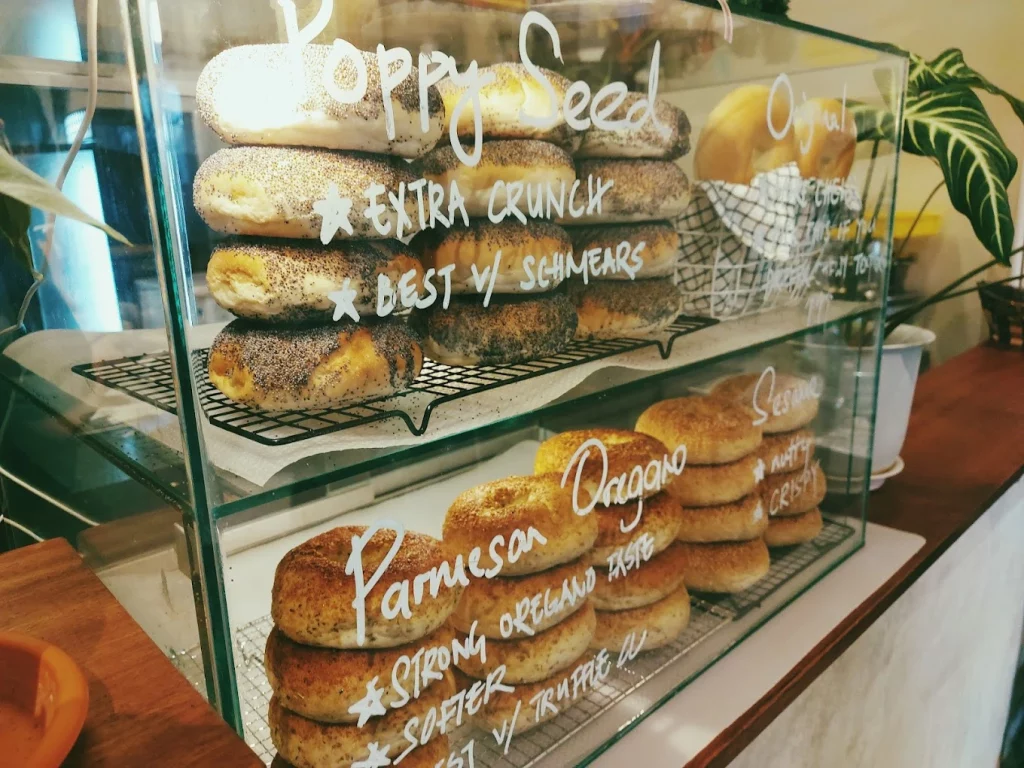 Poppy Seed
★ EXTRA CRUNCH
★ BEST W/ SCHMEARS
Original
Parmesan Oregano
★ STRONG OREGANO TASTE
★ SOFTER
W/ TRUFFLE
Sesame
★ NUTTY
★ CRISPY